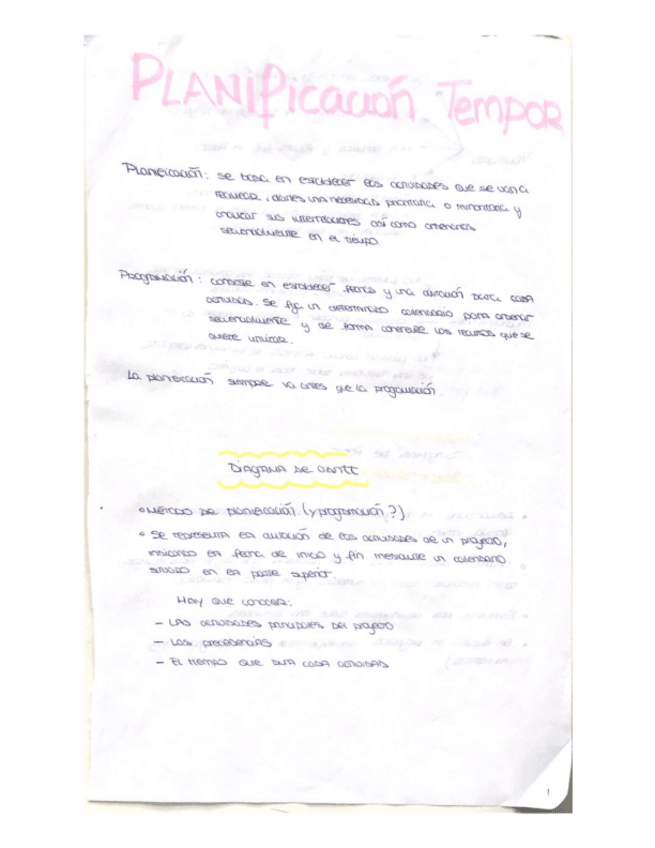 PLANIFICACIÓN TEMPOR
Planificación: se basa en establecer las actividades que se van a
realizar, darles una necesidad prioritaria o minoritaria y
sus interrelaciones así como ordenarlas
secuencialmente en el tiempo
Programación: consiste en establecer fecha y una duración para cada
actividad. Se fija un determinado calendario para ordenar
secuencialmente y de forma coherente los recursos que se
quiere utilizar.
La planificación siempre va antes que la programación.
DIAGRAMA DE GANTT
• Método de planificación (y programación?)
• Se representa la duración de las actividades de un proyecto,
indicando la fecha de inicio y fin mediante un calendario
situado en la parte superior.
Hay que conocer:
- Las actividades principales del proyecto
- Las precedencias
- El tiempo que dura cada actividad
1